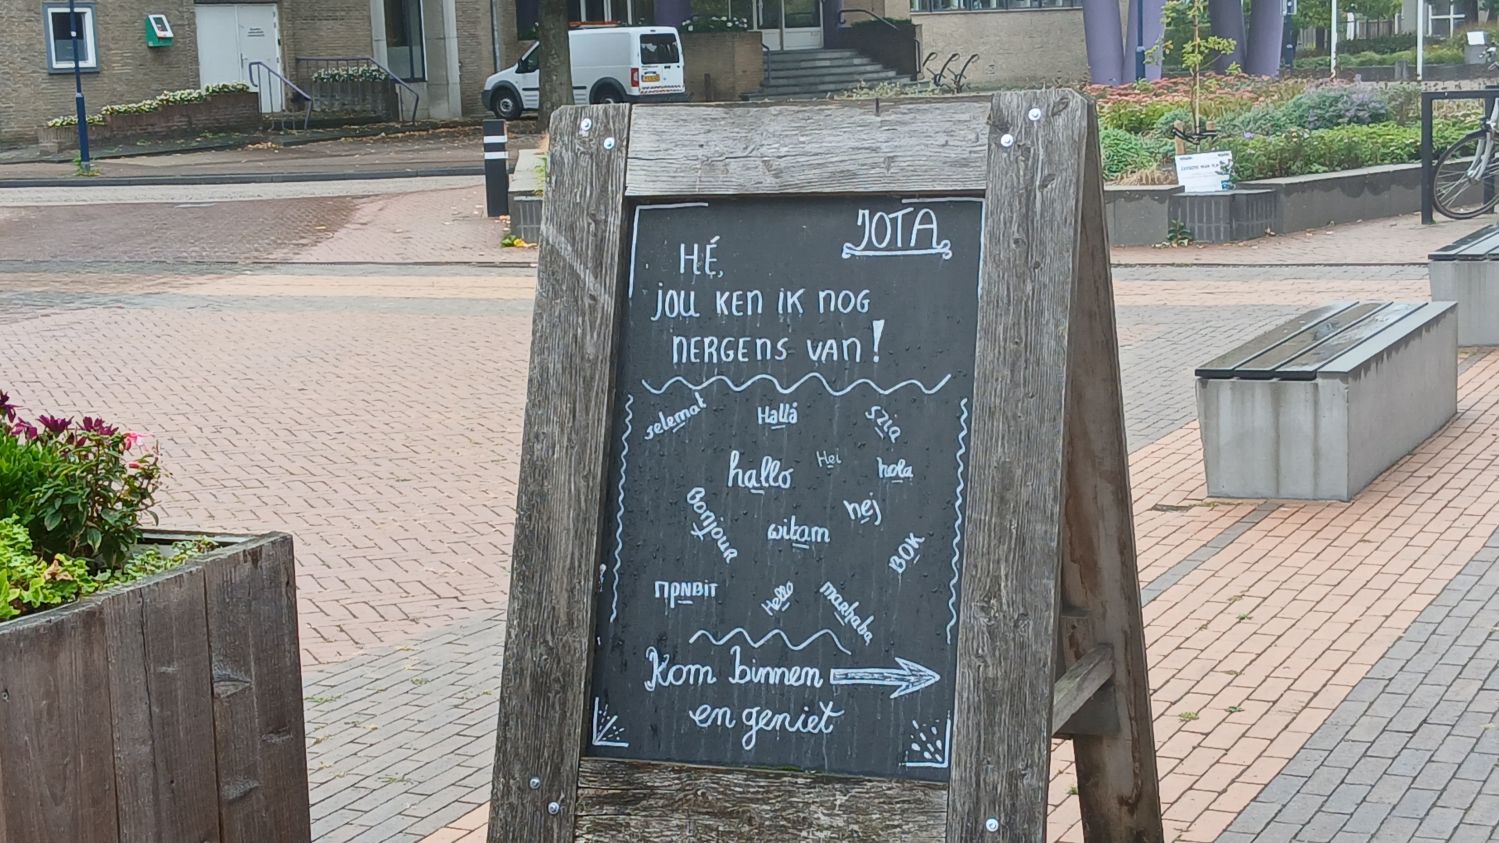 JOTA
HÉ,
JOU KEN IK NOG
NERGENS VAN!
selemat
Hallå
Szia
hallo
Hei
hola
Bonjour
nej
witam
BOK
ПРИВІТ
Hello
marhaba
Kom binnen
en geniet